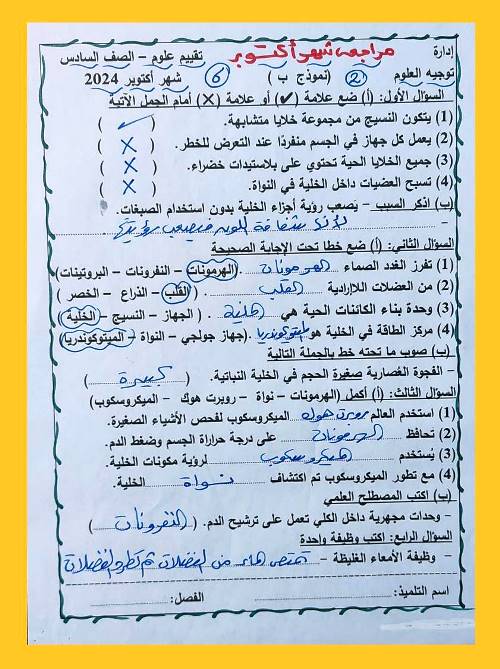 مراجعة شهر أكتوبر
إدارة تقييم علوم – الصف السادس
توجيه العلوم (2) (نموذج ب) (6) شهر أكتوبر 2024
السؤال الأول: (أ) ضع علامة (✓) أو علامة (✗) أمام الجمل الآتية
(1) يتكون النسيج من مجموعة خلايا متشابهة. (✓)
(2) يعمل كل جهاز في الجسم منفردًا عند التعرض للخطر. (✗)
(3) جميع الخلايا الحية تحتوي على بلاستيدات خضراء. (✗)
(4) تسبح العضيات داخل الخلية في النواة. (✗)
(ب) اذكر السبب – يصعب رؤية أجزاء الخلية بدون استخدام الصبغات.
– لأنها شفافة اللون فيصعب رؤيتها
السؤال الثاني: (أ) ضع خطا تحت الإجابة الصحيحة
(1) تفرز الغدد الصماء الهرمونات. (الهرمونات – النفرونات – البروتينات)
(2) من العضلات اللاإرادية القلب. (القلب – الذراع – الخصر)
(3) وحدة بناء الكائنات الحية هي الخلية. (الجهاز – النسيج – الخلية)
(4) مركز الطاقة في الخلية هو ميتوكوندريا. (جهاز جولجي – النواة – الميتوكوندريا)
(ب) صوب ما تحته خط بالجملة التالية
– الفجوة العصارية صغيرة الحجم في الخلية النباتية. (كبيرة)
السؤال الثالث: (أ) أكمل (الهرمونات – نواة – روبرت هوك – الميكروسكوب)
(1) استخدم العالم روبرت هوك الميكروسكوب لفحص الأشياء الصغيرة.
(2) تحافظ الهرمونات على درجة حراراة الجسم وضغط الدم.
(3) يُستخدم الميكروسكوب لرؤية مكونات الخلية.
(4) مع تطور الميكروسكوب تم اكتشاف نواة الخلية.
(ب) اكتب المصطلح العلمي
– وحدات مجهرية داخل الكلي تعمل على ترشيح الدم. (النفرونات)
السؤال الرابع: اكتب وظيفة واحدة
– وظيفة الأمعاء الغليظة – تمتص الماء من الفضلات ثم تطرد الفضلات
اسم التلميذ: الفصل: